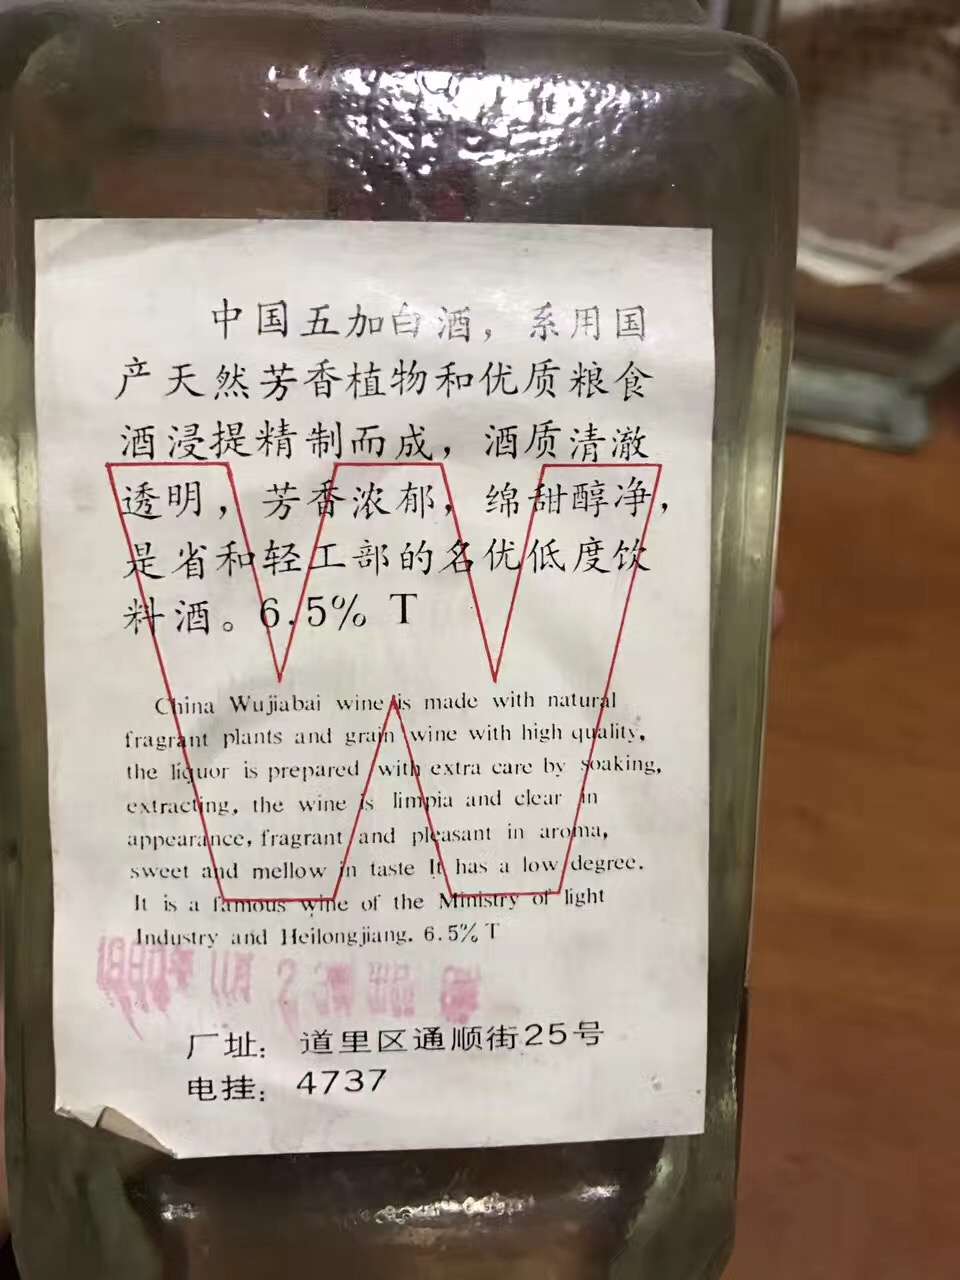 中国五加白酒，系用国
产天然芳香植物和优质粮食
酒浸提精制而成，酒质清澈
透明，芳香浓郁，绵甜醇净，
是省和轻工部的名优低度饮
料酒。6.5% T
China Wujiabai wine is made with natural
fragrant plants and grain wine with high quality,
the liquor is prepared with extra care by soaking,
extracting, the wine is limpia and clear in
appearance, fragrant and pleasant in aroma,
sweet and mellow in taste It has a low degree.
It is a famous wine of the Ministry of light
Industry and Heilongjiang. 6.5% T
厂址：道里区通顺街25号
电挂：4737